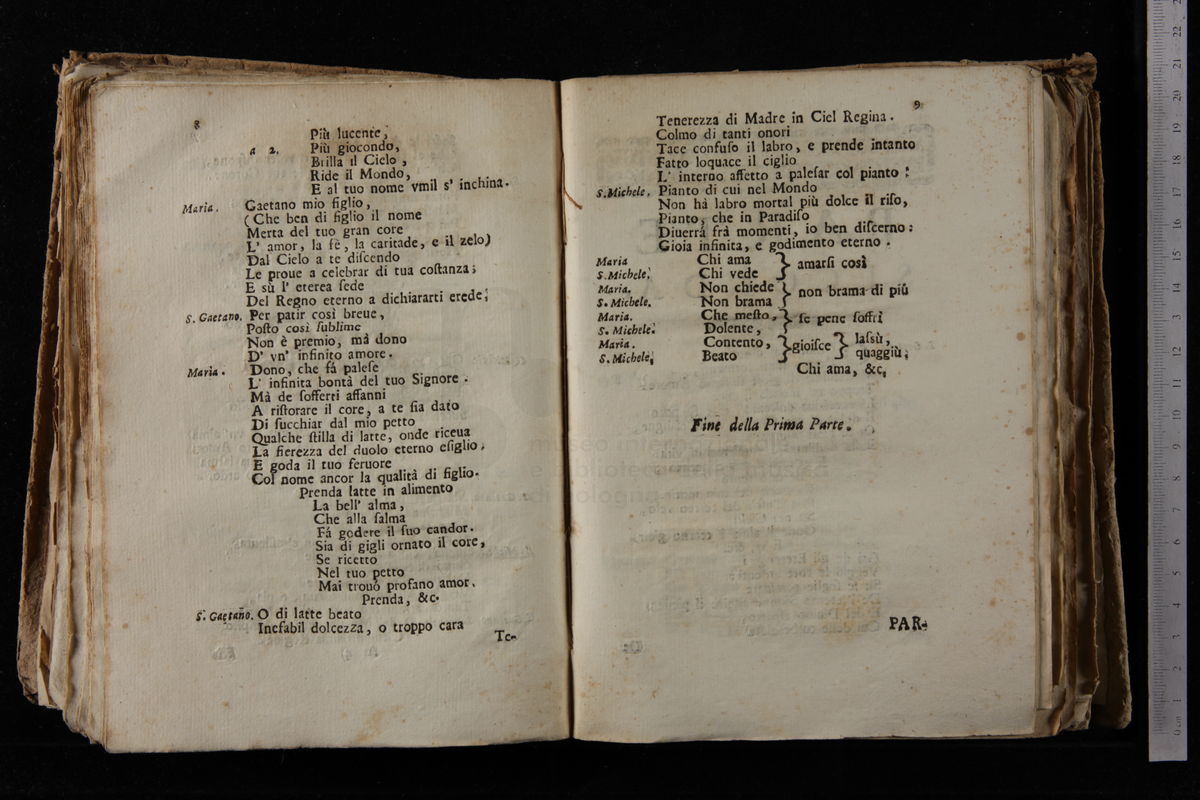 8
Più lucente,
a 2. Più giocondo,
Brilla il Cielo,
Ride il Mondo,
E al tuo nome vmil s' inchina.
Maria. Gaetano mio figlio,
(Che ben di figlio il nome
Merta del tuo gran core
L' amor, la fè, la caritade, e il zelo)
Dal Cielo a te diſcendo
Le proue a celebrar di tua coſtanza;
E sù l' eterea ſede
Del Regno eterno a dichiararti erede;
S. Gaetano. Per patir così breue,
Poſto così ſublime
Non è premio, mà dono
D' vn' infinito amore.
Maria. Dono, che fà paleſe
L' infinita bontà del tuo Signore.
Mà de ſofferti affanni
A riſtorare il core, a te ſia dato
Di ſucchiar dal mio petto
Qualche ſtilla di latte, onde riceua
La fierezza del duolo eterno eſiglio,
E goda il tuo feruore
Col nome ancor la qualità di figlio.
Prenda latte in alimento
La bell' alma,
Che alla ſalma
Fà godere il ſuo candor.
Sia di gigli ornato il core,
Se ricetto
Nel tuo petto
Mai trouò profano amor.
Prenda, &c.
S. Gaetano. O di latte beato
Inefabil dolcezza, o troppo cara
Te-
9
Tenerezza di Madre in Ciel Regina.
Colmo di tanti onori
Tace confuſo il labro, e prende intanto
Fatto loquace il ciglio
L' interno affetto a paleſar col pianto:
S. Michele. Pianto di cui nel Mondo
Non hà labro mortal più dolce il riſo,
Pianto, che in Paradiſo
Diuerrà frà momenti, io ben diſcerno:
Gioia infinita, e godimento eterno.
Maria Chi ama } amarſi così
S. Michele. Chi vede
Maria. Non chiede } non brama di più
S. Michele. Non brama
Maria. Che meſto, } ſe pene ſoffrì
S. Michele. Dolente,
Maria. Contento, } gioiſce } laſsù,
S. Michele. Beato quaggiù;
Chi ama, &c.
Fine della Prima Parte.
PAR-
museo internazionale
e biblioteca della musica
di bologna